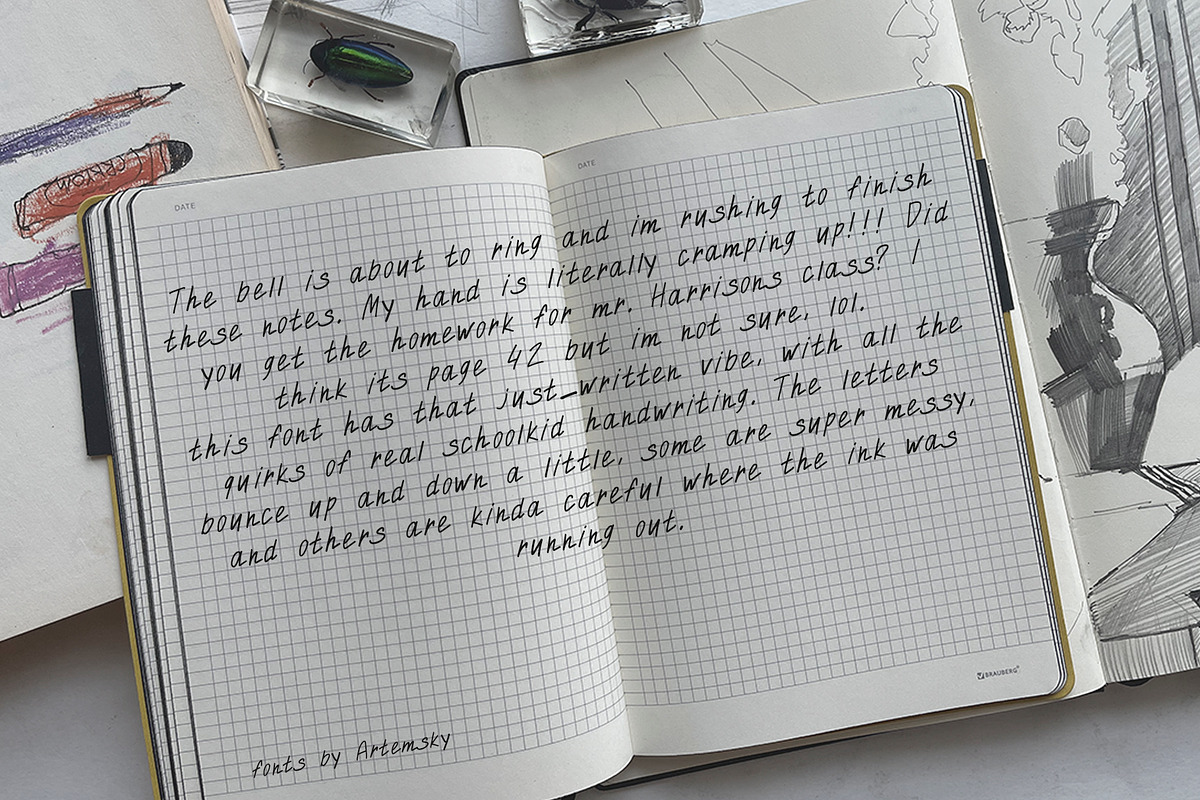 DATE
DATE
The bell is about to ring and im rushing to finish
these notes. My hand is literally cramping up!!! Did
you get the homework for mr. Harrisons class? I
think its page 42 but im not sure, lol.
this font has that just_written vibe, with all the
quirks of real schoolkid handwriting. The letters
bounce up and down a little, some are super messy,
and others are kinda careful where the ink was
running out.
fonts by Artemsky
BRAUBERG®